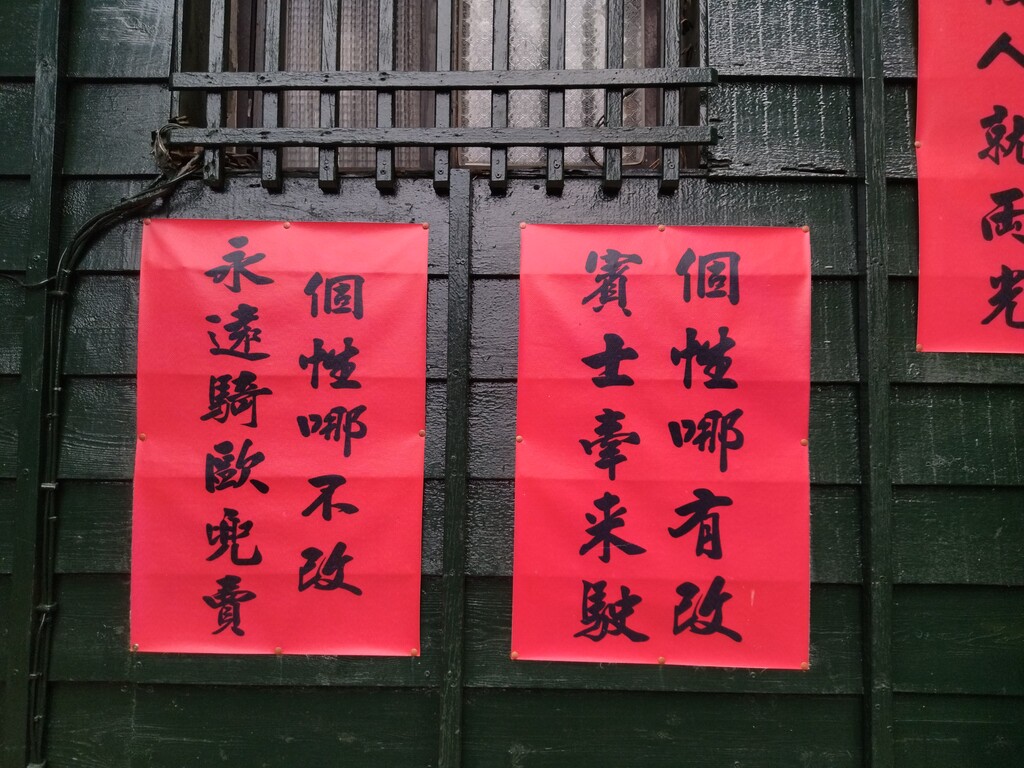 人就両光
個性哪有改
賓士牽来駛
個性哪不改
永遠騎歐兜賣